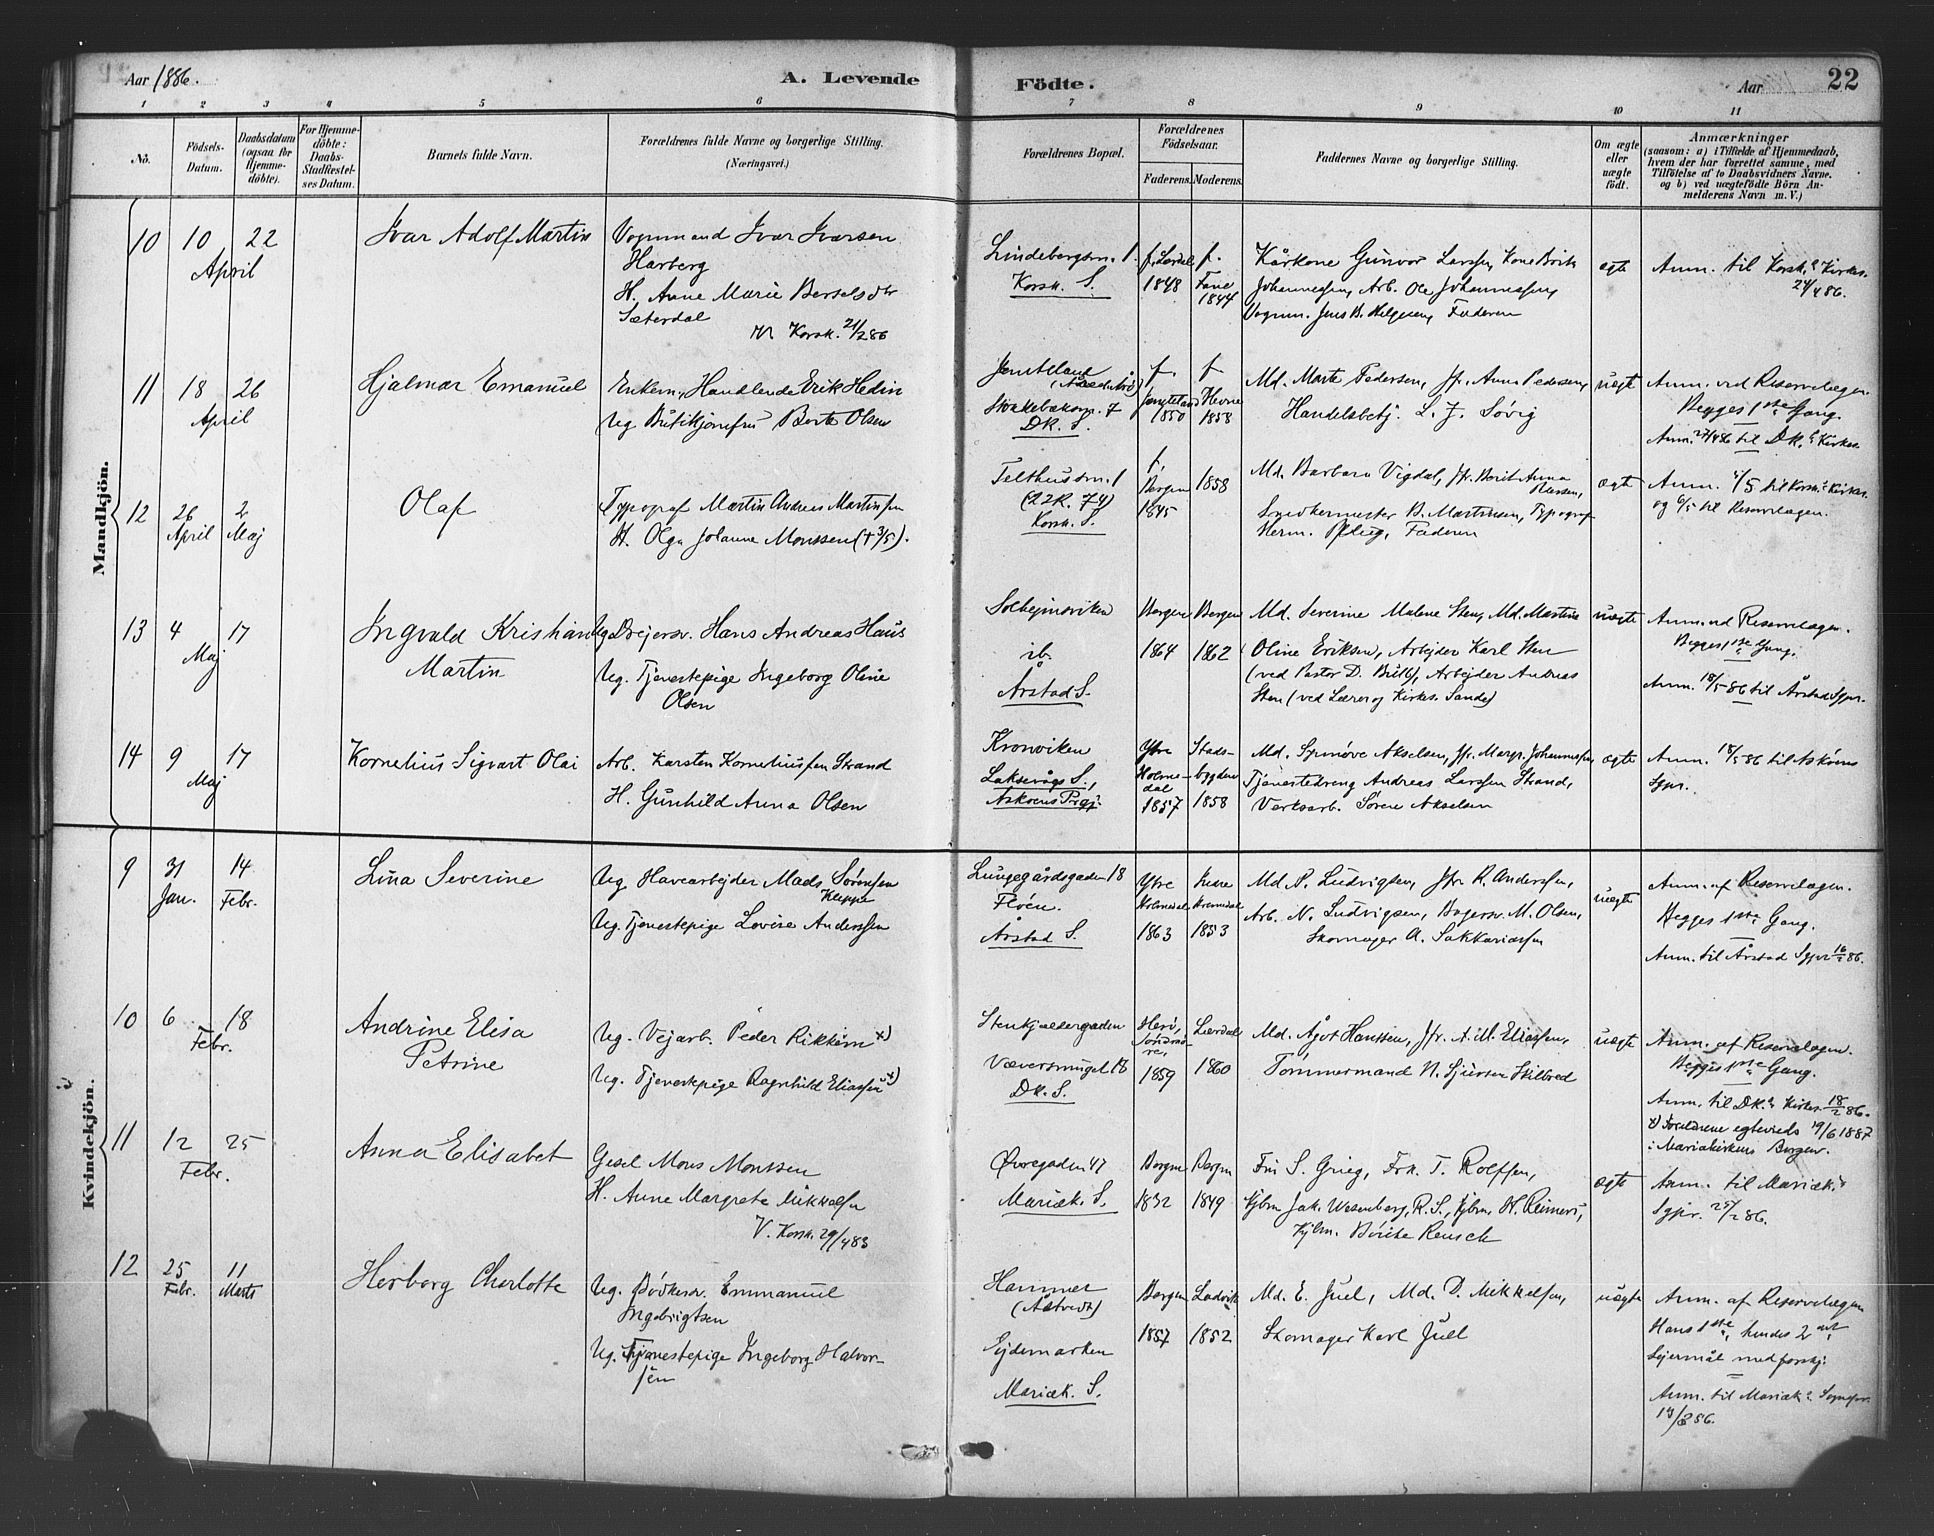 Aar 1886.
A. Levende
Födte.
Aar
22
1 2 3 4 5 6 7 8 9 10 11
No.
Födsels-Datum.
Daabsdatum (ogsaa for Hjemme-döbte).
For Hjemme-döbte: Daabs-Stadfæstel-ses Datum.
Barnets fulde Navn.
Forældrenes fulde Navne og borgerlige Stilling. (Næringsvei.)
Forældrenes Bopæl.
Forældrenes Födselsaar.
Faderens. Moderens.
Faddernes Navne og borgerlige Stilling.
Om ægte eller uægte födt.
Anmærkninger
(saasom: a) i Tilfælde af Hjemmedaab,
hvem der har forrettet samme, med
Tilföielse af to Daabsvidners Navne.
og b) ved uægtefödte Börn An-
melderens Navn m. V.)
Mandkjön.
10 10 April 22
Ivar Adolf Martin
Vognmand Ivar Ivarsen
Harberg
H. Anne Marie Berselsdtr
Sæterdal
V. Korsk. 21/2 86
Lindebergsm. 1.
Korsk. S.
f. Lærdal 1848
f. Fane 1844
Kårkone Gunvor Larssen, Kone Brita
Johannessen, Arb. Ole Johannessen,
Vognm. Jens B. Helgesen, Faderen
ægte
Anm. til Korsk.s Kirkes.
24/4 86.
11 18 April 26
Hjalmar Emanuel
Enkem., Handlende Erik Hedin
Ug. Butikjomfru Berte Olsen
Jemtland
Stokkebækssm. 7
DK. S.
f. Jemteland 1850
f. Hevne 1858
Md. Marte Pedersen, Jfr. Anna Pedersen,
Handelsbetj. L. J. Søvig
uægte
Anm. ved Reservelægen.
Begges 1ste Gang.
Anm. 27/4 86 til DK.s Kirkes.
12 26 April 2 Maj
Olaf
Typograf Martin Andreas Martinssen
H. Olga Johanne Monssen (+ 3/5).
Telthussm. 1
(22R. 74)
Korsk. S.
f. Bergen 1845
1858
Md. Barbara Vigdal, Jfr. Berit Anna
Snedkermester B. Martinsen, Typograf
Herm. Pflug, Faderen
ægte
Anm. 4/5 til Korsk.s Kirkes.
og 6/5 til Reservelægen.
13 4 Maj 17
Ingvald Kristian
Martin
Ug. Drejersv. Hans Andreas Haus
Ug. Tjenestepige Ingeborg Oline
Olsen
Solhejmsviken
ib.
Årstad S.
Bergen 1864
Bergen 1862
Md. Severine Malene Sten, Md. Martine
Oline Eriksen, Arbejder Karl Sten
(ved Pastor D. Bull), Arbejder Andreas
Sten (ved Lærer og Kirkes. Sande)
uægte
Anm. ved Reservelægen.
Begges 1ste Gang.
Anm. 18/5 86 til Årstad Sgpr.
14 9 Maj 17
Kornelius Sigvart Olai
Arb. Karsten Korneliussen Strand
H. Gunhild Anna Olsen
Kronviken
Laksevågs S.,
Askøens Prgj.
Ytre Holmedal 1857
Stadsbygden 1858
Md. Synnøve Akselsen, Jfr. Margr. Johannessen,
Tjenestedreng Andreas Larssen Strand,
Værksarb. Søren Akselsen
ægte
Anm. 18/5 86 til Askøens
Sgpr.
Kvindekjön.
9 31 Jan. 14 Febr.
Lina Severine
Ug. Havearbejder Mads Sørensen
Kleppe
Ug. Tjenestepige Lovise Anderssen
Lungegårdsgaden 18
Fløen.
Årstad S.
Ytre Holmedal 1863
Indre Holmedal 1853
Md. P. Ludvigsen, Jfr. R. Anderssen,
Arb. N. Ludvigsen, Bagersv. M. Olsen,
Skomager A. Sakkariassen
uægte
Anm. af Reservelægen.
Begges 1ste Gang.
Anm. til Årstad Sgpr. 16/2 86.
10 6 Febr. 18
Andrine Elisa
Petrine
Ug. Vejarb. Peder Rikkem x)
Ug. Tjenestepige Ragnhild Eliassen x)
Stenkjældergaden
Væversmuget 18
DK. S.
Herø, Søndmøre, 1859
Lærdal 1860
Md. Ågot Hanssen, Jfr. A. M. Eliassen,
Tømmermand N. Sjursen Skilbred
uægte
Anm. af Reservelægen.
Begges 1ste Gang.
Anm. til DK.s Kirkes. 18/2 86.
x) Forældrene egteviede 19/6 1887
i Mariakirken Bergen.
11 12 Febr. 25
Anna Elisabet
Gesel Mons Monssen
H. Anne Margrete Mikkelsen
V. Korsk. 29/4 83
Øvregaden 47
Mariæk. S.
Bergen 1832
Bergen 1849
Fru S. Grieg, Frk. T. Rolfsen,
Kjbm. Jak. Wesenberg, R. S., Kjbm. H. Reimers,
Kjbm. Børike Reusch
ægte
Anm. til Mariæk.s
Sgpr. 25/2 86.
12 25 Febr. 11 Marts
Herborg Charlotte
Ug. Bødkersv. Emmanuel
Ingebrigtsen
Ug. Tjenestepige Ingeborg Halvor-
sen
Hammer
(Åstvedt)
Ejdemarken
Mariæk. S.
Bergen 1857
Ladvik 1852
Md. E. Juel, Md. D. Mikkelsen,
Skomager Karl Juel
uægte
Anm. af Reservelægen
Hans 1ste, hendes 2det
Lejermål med forskj.
Anm. til Mariæk.s Sognepr.